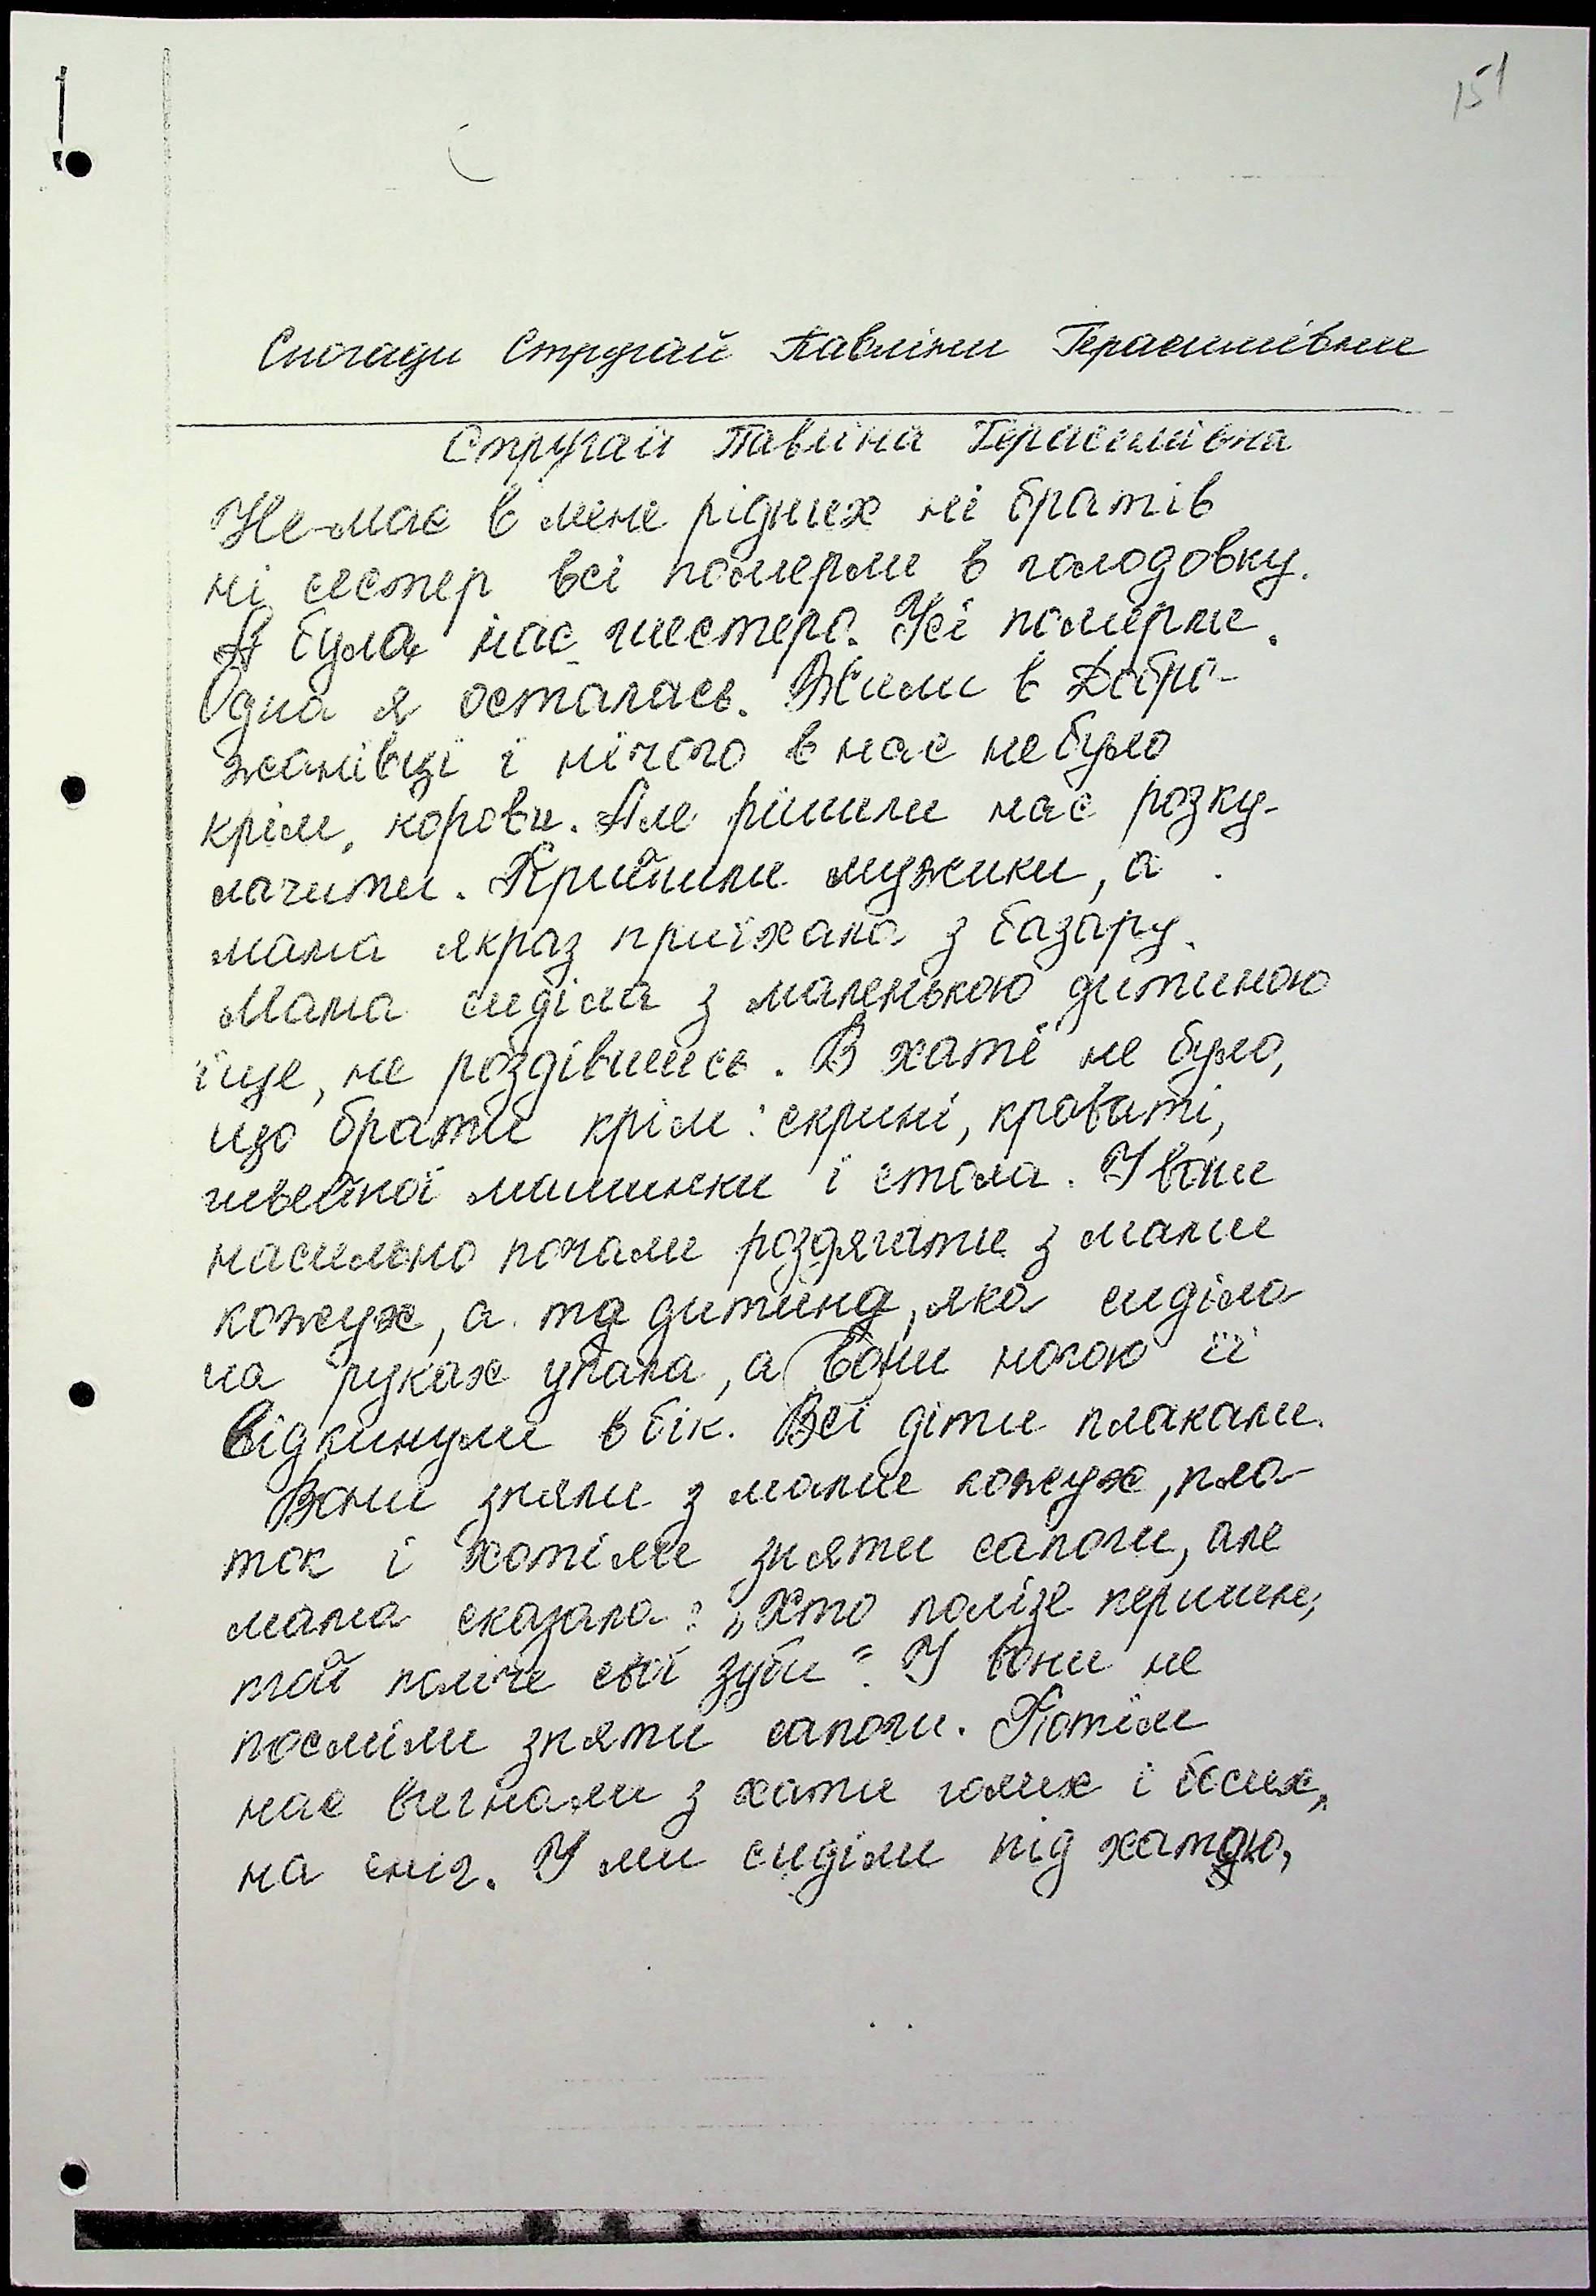 151
Спогади Стругай Павліни Герасимівни
Стругай Павліна Герасимівна
Не має в мене рідних ні братів
ні сестер всі померли в голодовку.
А була нас шестеро. Усі померли.
Одна я осталась. Жили в Добро-
жанівці і нічого в нас не було
крім, корови. Але рішили нас розку-
лачити. Прийшли мужики, а
мама якраз приїхала з базару.
Мама сиділа з маленькою дитиною
іще, не роздівшись. В хаті не було,
що брати крім: скрині, кроваті,
швейної машинки і стола. І вони
насильно почали роздягати з мами
кожух, а та дитина, яка сиділа
на руках упала, а вони ногою її
відкинули в бік. Всі діти плакали.
Вони зняли з мами кожух, пла-
ток і хотіли зняти сапоги, але
мама сказала: „Хто полізе першим,
той поліче свої зуби". І вони не
посміли зняти сапоги. Потім
нас вигнали з хати голих і босих,
на сніг. І ми сиділи під хатою,